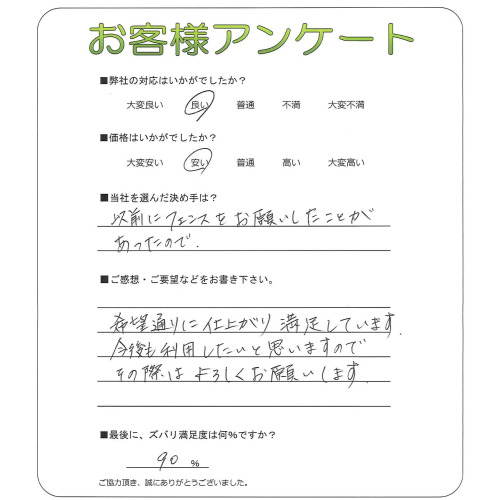 お客様アンケート
■弊社の対応はいかがでしたか？
大変良い 良い 普通 不満 大変不満
■価格はいかがでしたか？
大変安い 安い 普通 高い 大変高い
■当社を選んだ決め手は？
以前にフェンスをお願いしたことが
あったので.
■ご感想・ご要望などをお書き下さい。
希望通りに仕上がり満足しています.
今後も利用したいと思いますので
その際はよろしくお願いします.
■最後に、ズバリ満足度は何%ですか？
90 %
ご協力頂き、誠にありがとうございました。